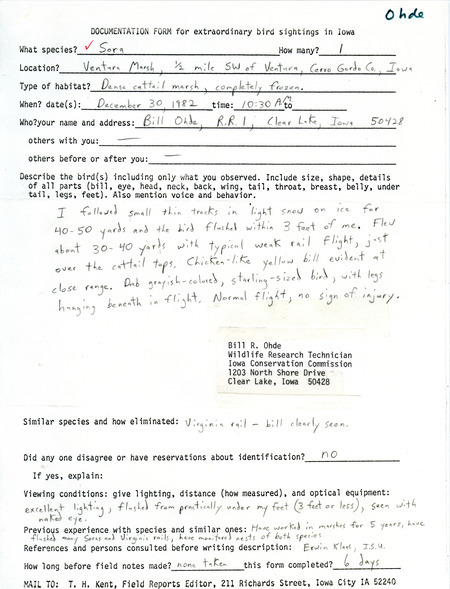 Ohde
DOCUMENTATION FORM for extraordinary bird sightings in Iowa
What species? ✓ Sora How many? 1
Location? Ventura Marsh, ½ mile SW of Ventura, Cerro Gordo Co., Iowa
Type of habitat? Dense cattail marsh, completely frozen.
When? date(s): December 30, 1982 time: 10:30 AM to
Who? your name and address: Bill Ohde, R.R. 1, Clear Lake, Iowa 50428
others with you: —
others before or after you: —
Describe the bird(s) including only what you observed. Include size, shape, details
of all parts (bill, eye, head, neck, back, wing, tail, throat, breast, belly, under
tail, legs, feet). Also mention voice and behavior.
I followed small thin tracks in light snow on ice for
40-50 yards and the bird flushed within 3 feet of me. Flew
about 30-40 yards with typical weak rail flight, just
over the cattail tops. Chicken-like yellow bill evident at
close range. Drab grayish-colored, starling-sized bird, with legs
hanging beneath in flight. Normal flight, no sign of injury.
Bill R. Ohde
Wildlife Research Technician
Iowa Conservation Commission
1203 North Shore Drive
Clear Lake, Iowa 50428
Similar species and how eliminated: Virginia rail - bill clearly seen.
Did any one disagree or have reservations about identification? no
If yes, explain:
Viewing conditions: give lighting, distance (how measured), and optical equipment:
excellent lighting, flushed from practically under my feet (3 feet or less), seen with
naked eye.
Previous experience with species and similar ones: Have worked in marshes for 5 years, have
flushed many Soras and Virginia rails, have monitored nests of both species.
References and persons consulted before writing description: Erwin Klaas, I.S.U.
How long before field notes made? none taken this form completed? 6 days
MAIL TO: T. H. Kent, Field Reports Editor, 211 Richards Street, Iowa City IA 52240